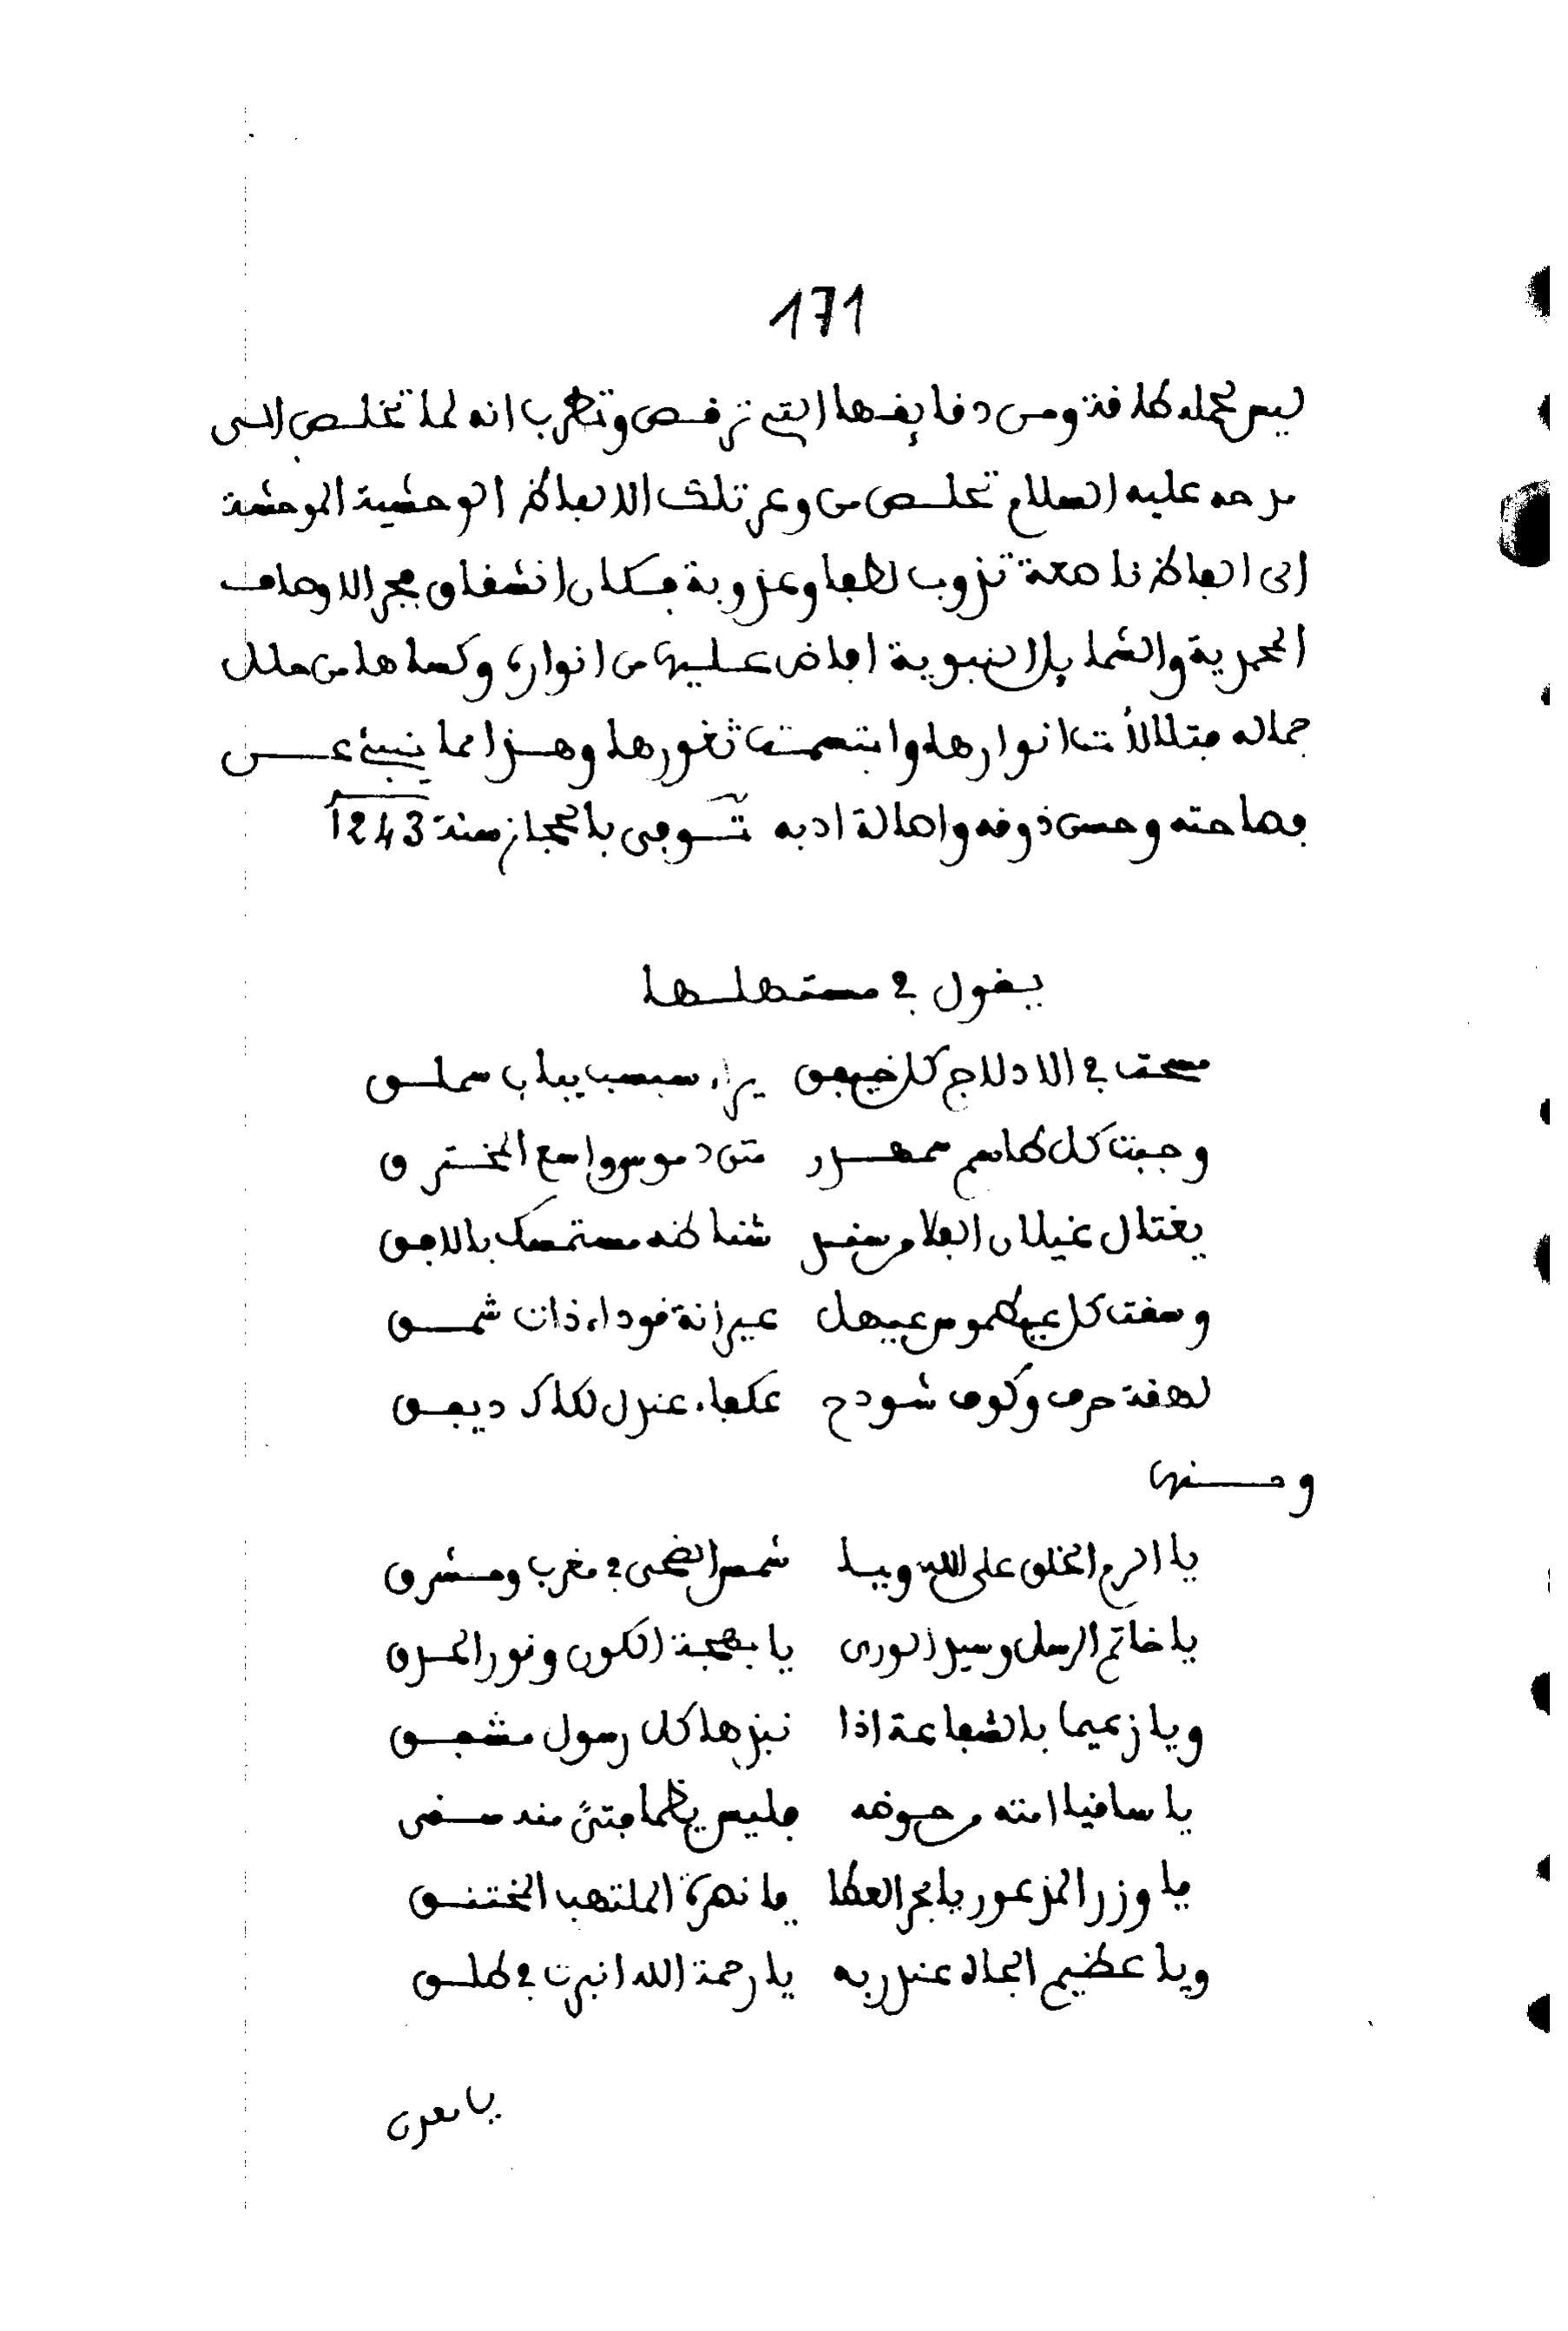 171
ليس لحمله طاقة ومن دقايقها التي ترقص وتطرب انه لما تخلص الى
مدحه عليه السلام تخلص من وعر تلك الالفاظ الوحشية الموحشة
الى الفاظ ناصعة تذوب لطفا وعذوبة فكان انشقاق فجر الاوصاف
المحمدية والشمايل النبوية افاض عليها من انواره وكساها من حلل
جماله فتلالأت انوارها وابتسمت ثغورها وهذا مما ينبئ عن
فصاحته وحسن ذوقه واصالة ادبه توفي بالحجاز سنة 1243
يقول في مستهلها
سحت في الادلاج كل خيفق يراء سبسب يباب سملق
وجبت كل طاسم سمهدر متن دموس واسع المخترق
يغتال غيلان الفلا من شناظه مستمسك بالافق
وسقت كل عيطموس عيهل عيرانة قوداء ذات شمق
لهقة حرف وكوف شودح عكفاء عندل لكاك ديفق
ومنها
يا اكرم الخلق على الله ويا شمس الضحى في مغرب ومشرق
يا خاتم الرسل وسيد الورى يا بهجة الكون ونور الحدق
ويا زعيما بالشفاعة اذا نبذها كل رسول مشفق
يا ساقيا امته من حوضه فليس يظما فتىً منه سقى
يا وزر المذعور يا بحر العطا يا نصرة الملتهب المختنق
ويا عظيم الجاه عند ربه يا رحمة الله انبرت في طلق
يا معدن